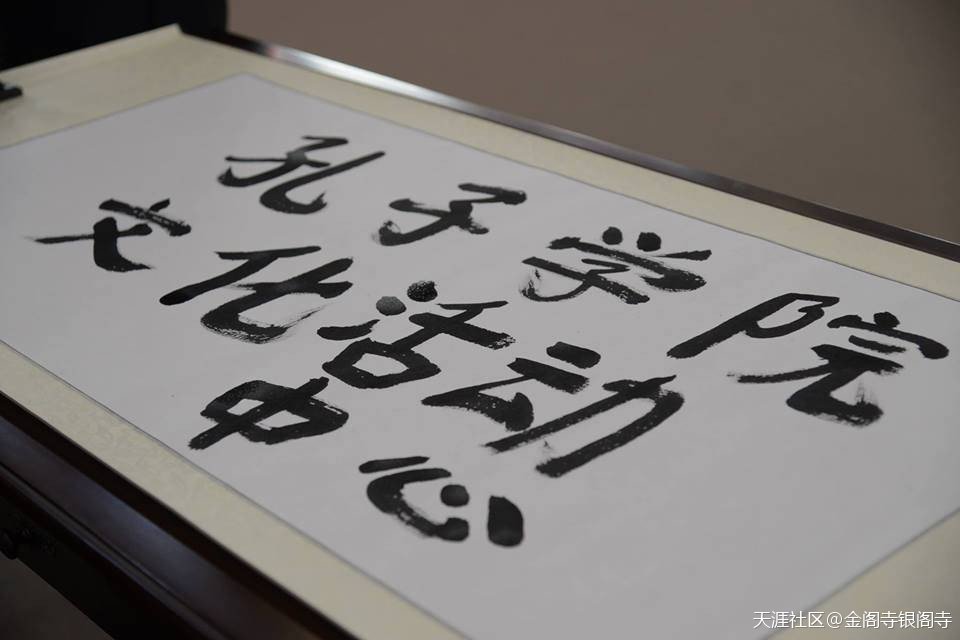 孔子学院
文化活动
中心
天涯社区@金阁寺银阁寺